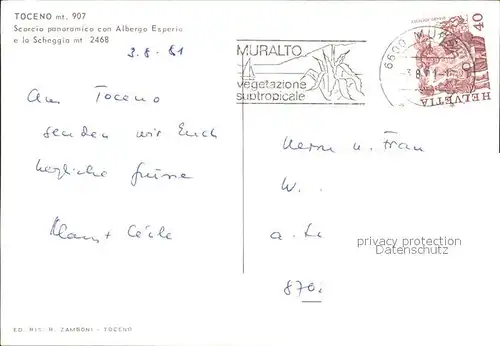 TOCENO mt. 907
Scorcio panoramico con Albergo Esperia
e la Scheggia mt 2468
3.8.81
MURALTO
vegetazione
subtropicale
6600 MU
HELVETIA
40
Aus Toceno
senden wir Euch
herzliche Grüsse
Klaus + Cécile
Herrn u. Frau
W.
a. L
870.
privacy protection
Datenschutz
ED. RIS. R. ZAMBONI - TOCENO